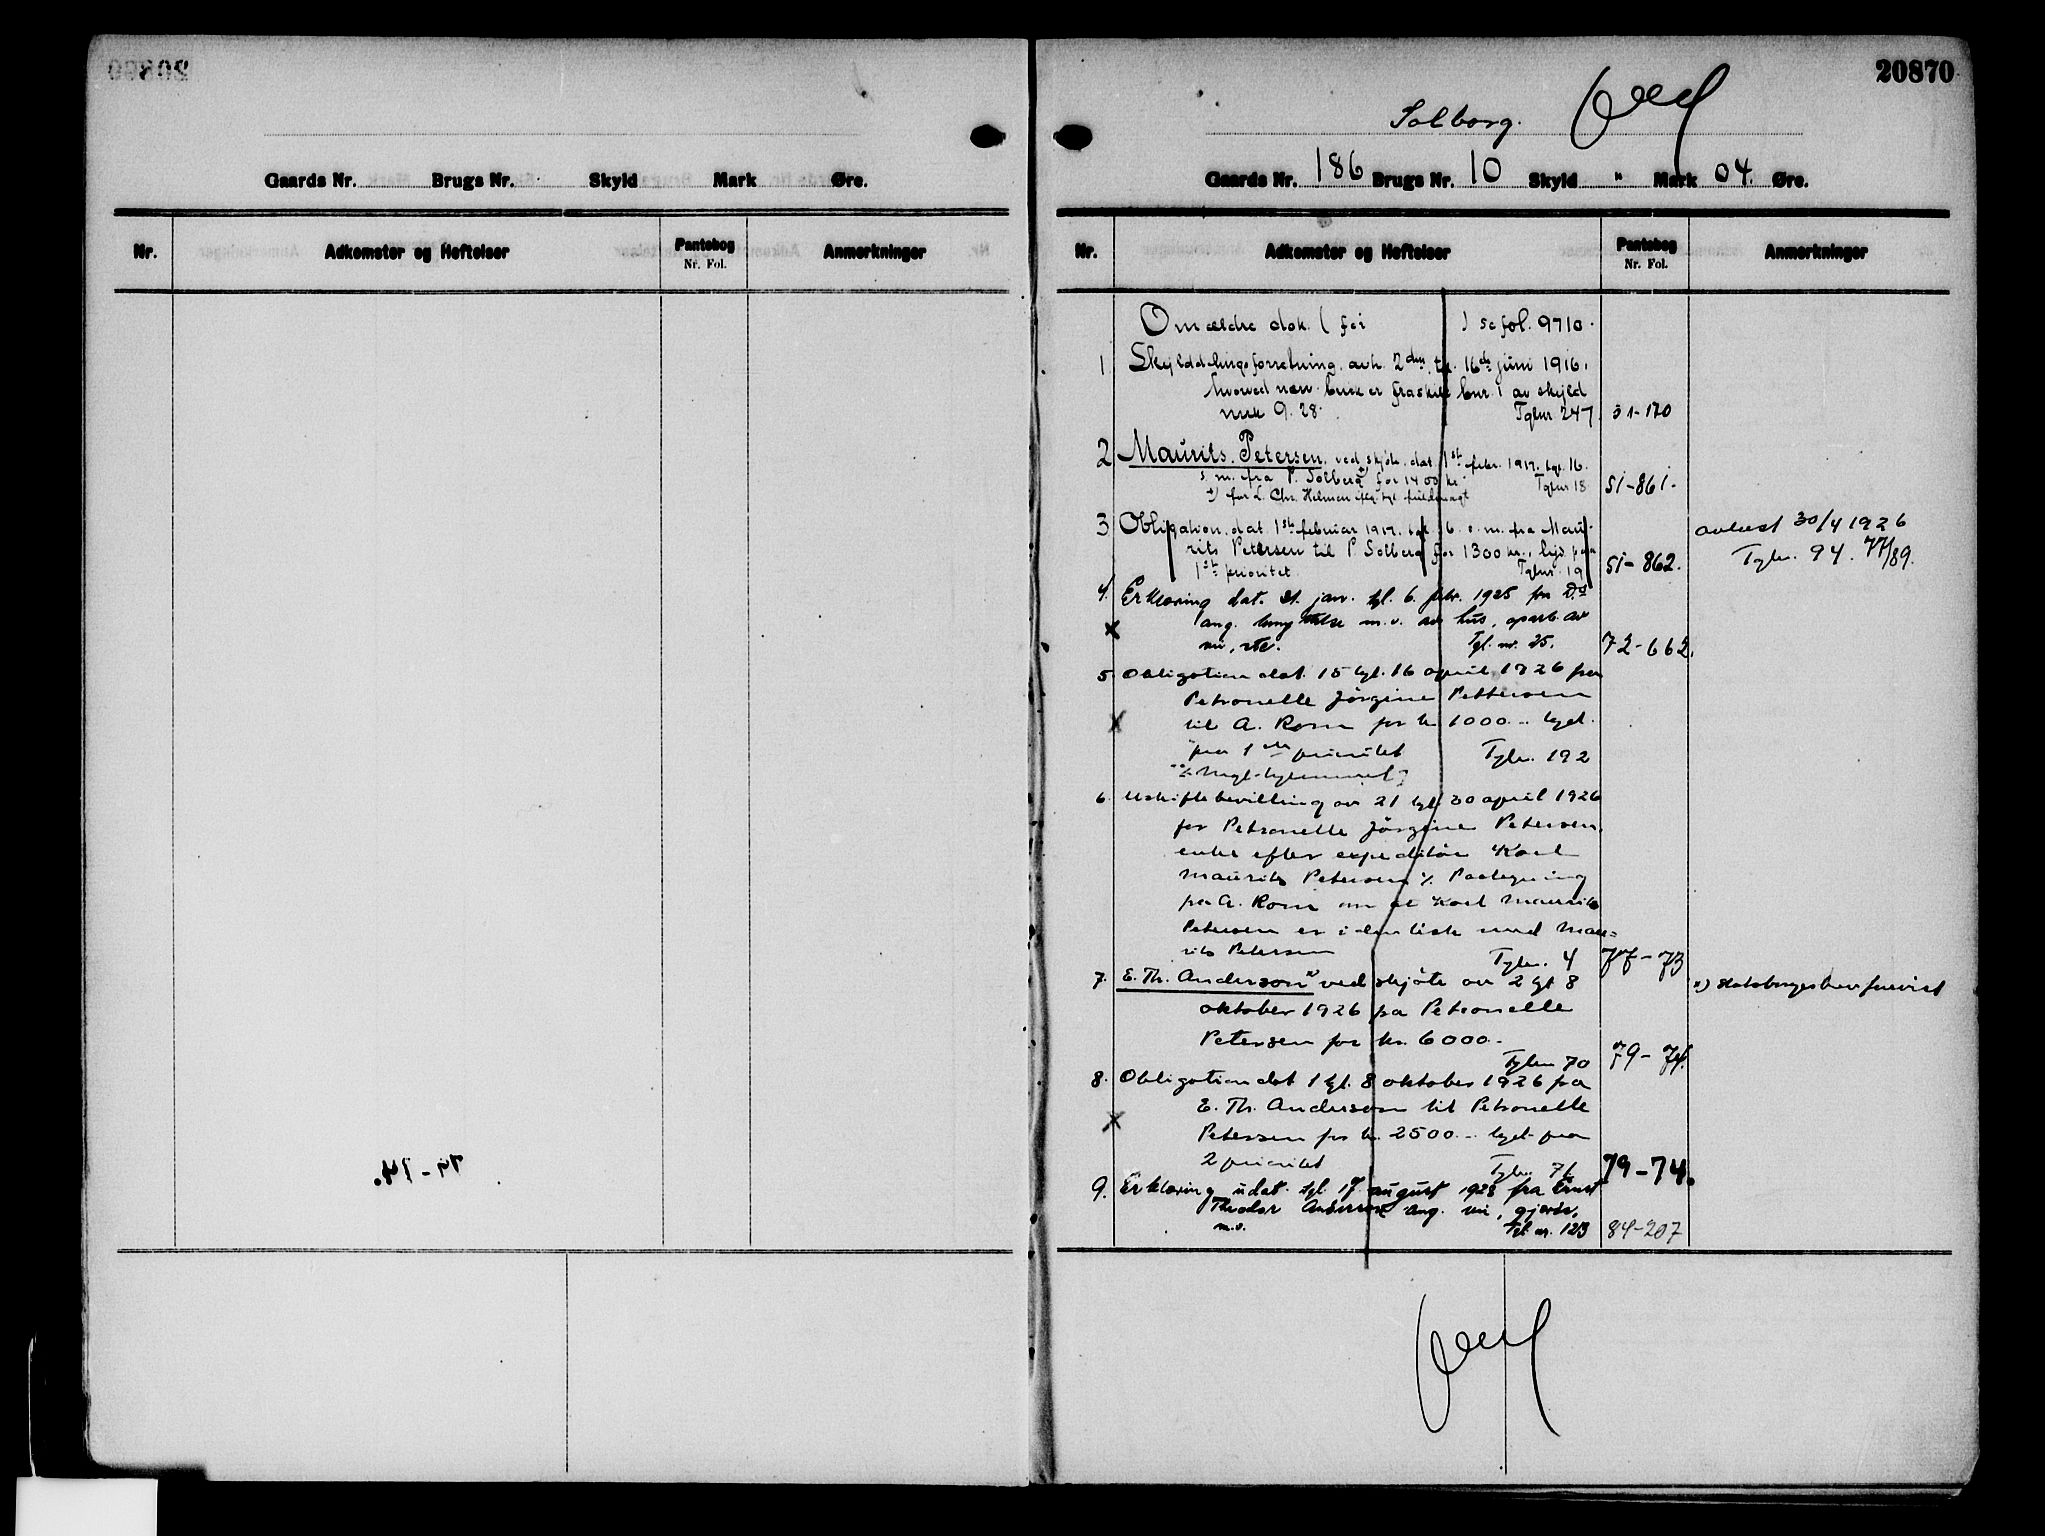 Gaards Nr. Brugs Nr. Skyld Mark Øre.
Nr. Adkomster og Heftelser Pantebog Nr. Fol. Anmerkninger
20870
Solborg.
Gaards Nr. 186 Brugs Nr. 10 Skyld " Mark 04. Øre.
Nr. Adkomster og Heftelser Pantebog Nr. Fol. Anmerkninger
Om ældre dok. ( før ) se fol. 9710.
1 Skylddelingsforretning. avh. 2den, tgl. 16de juni 1916,
hvorved nærv. bruk er fraskilt bnr. 1 av skyld
mrk 9.28. Tgbnr 247. 51-170
2 Maurits. Petersen. ved skjøte. dat. 1ste febr. 1917. tgl. 16.
s. m. fra P. Solberg +) for 1400 kr. Tgbnr 18 51-861.
+) for L. Chr. Helmen iflg. tgl. fuldmagt
3 Obligation. dat 1ste februar 1917. tgl. 16. s. m. fra Mau-
rits Petersen til P. Solberg for 1300 kr., lyd. paa
1ste prioritet. Tgbnr. 19 51-862.
avlæst 30/4 1926
Tgbn. 94. 77/89.
4. Erklæring dat. 21. jan. tgl. 6. febr. 1925 fra D.s
ang. benyttelse m.v. av hus, oparb. av
vei, etc. Tgl. nr. 25. 72-662.
5 Obligation dat. 15 tgl. 16 april 1926 fra
Petronelle Jörgine Pettersen
til A. Rom for kr 1000.- lyd.
paa 1ste prioritet Tgbn. 192
6. Uskiftebevilling av 21 tgl. 30 april 1926
for Petronelle Jörgine Petersen,
enke efter expeditör Karl
Maurits Petersen %. Paategning
fra A. Rom om at Karl Maurits
Petersen er identisk med Mau-
rits Petersen Tgbn. 4 77-73
7. E. Th. Anderson x) ved skjöte av 2 tgl 8
oktober 1926 fra Petronelle
Petersen for kr. 6000.-
Tgbn 70 79-74.
x) Statsborgerbrev forevist
8. Obligation dat 1 tgl. 8 oktober 1926 fra
E. Th. Anderson til Petronelle
Petersen for kr. 2500.- lyd. paa
2 prioritet Tgbn. 71. 79-74.
9. Erklæring udat. tgl. 17. august 1928 fra Ernst
Theodor Anderson ang. vei, gjerde,
m.v. Tgl. nr. 123 84-207